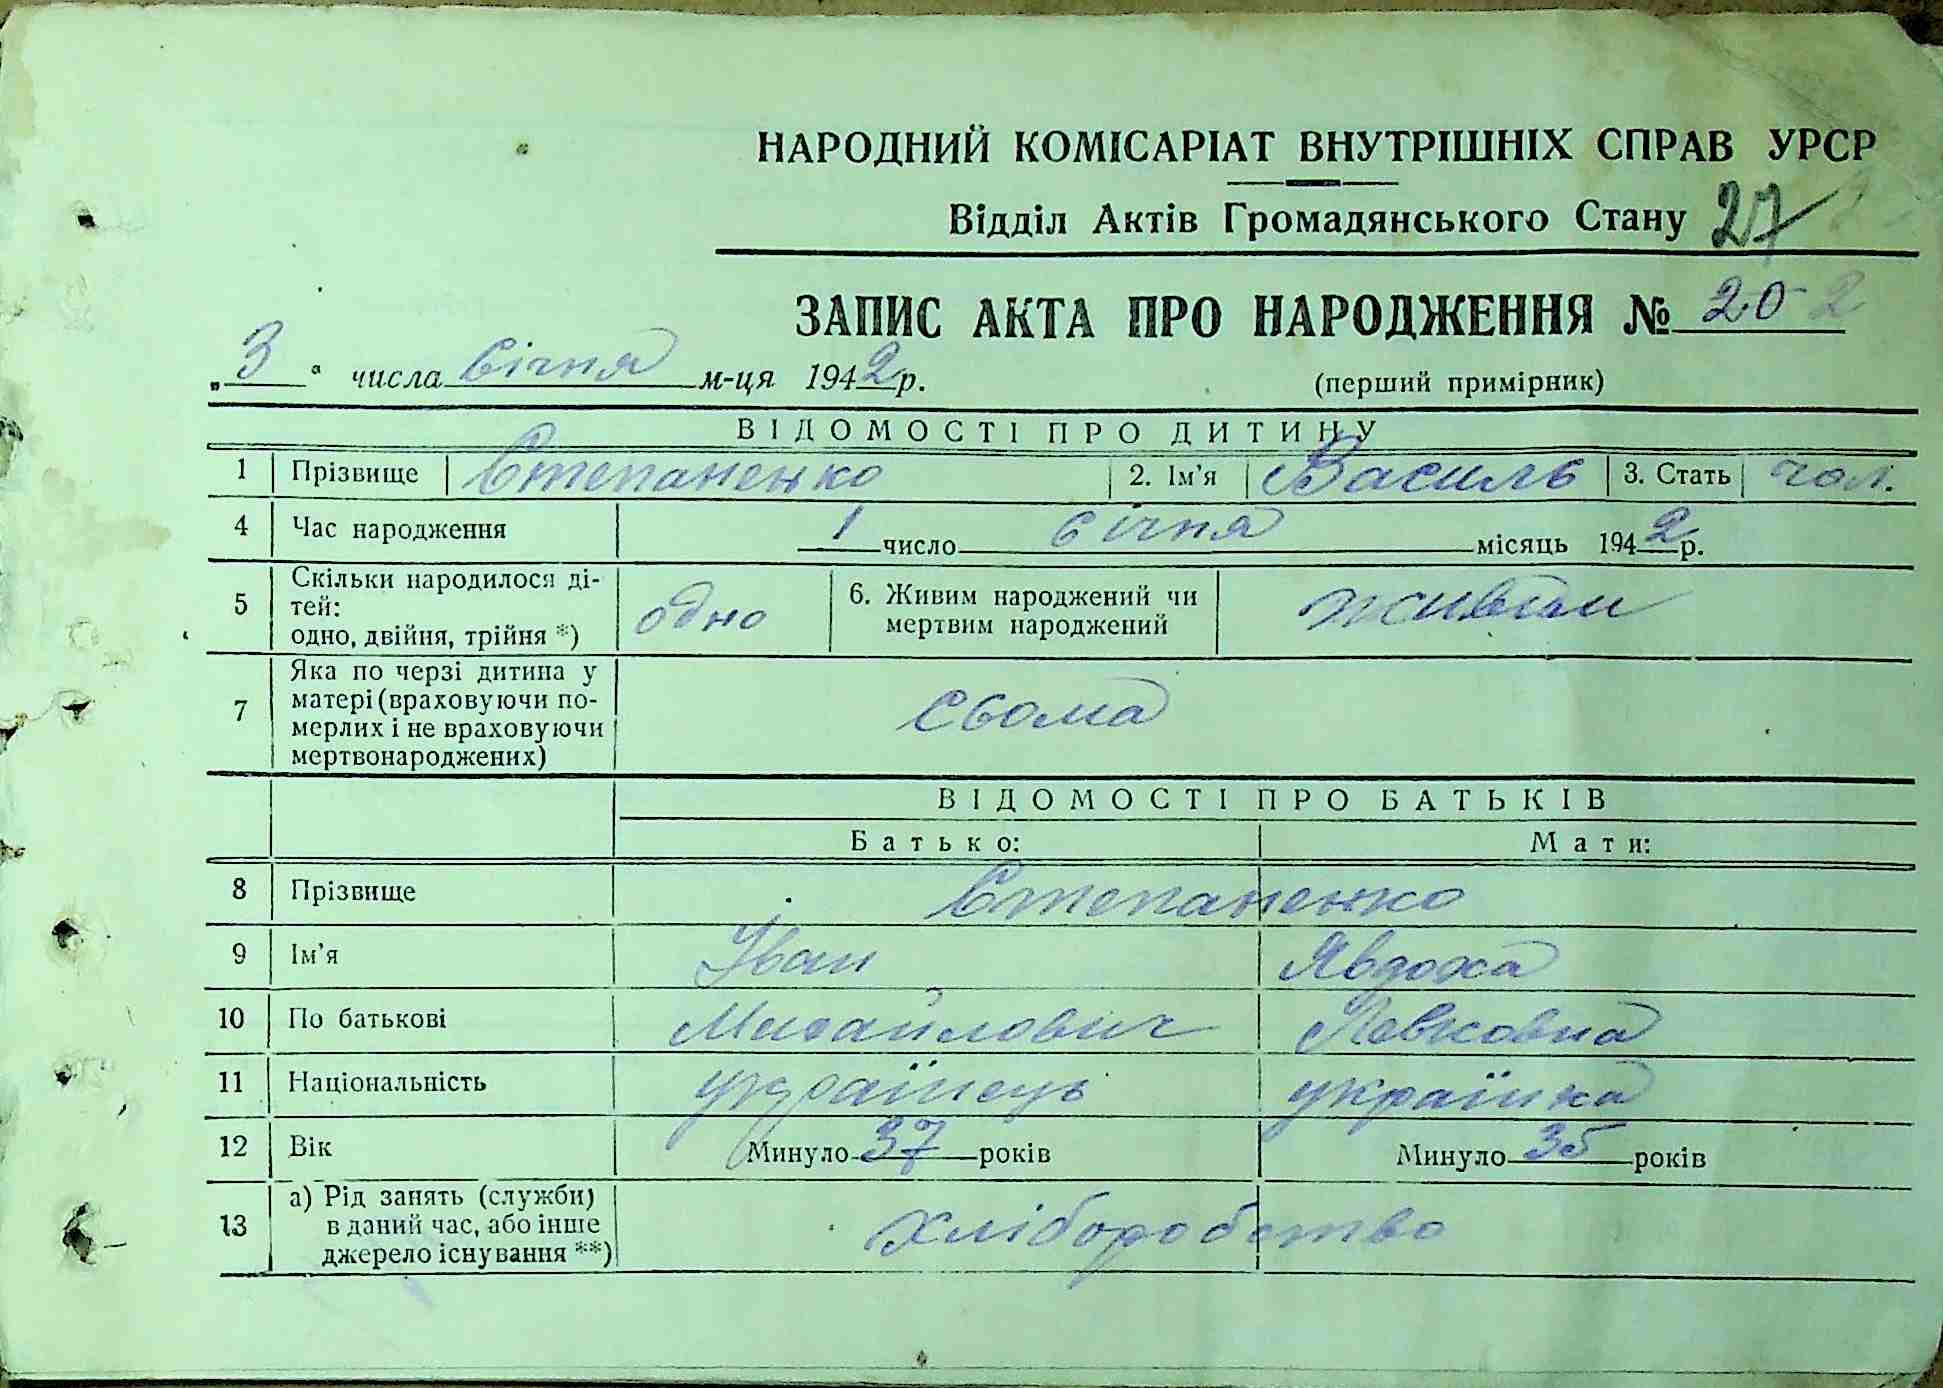 НАРОДНИЙ КОМІСАРІАТ ВНУТРІШНІХ СПРАВ УРСР
Відділ Актів Громадянського Стану 27
ЗАПИС АКТА ПРО НАРОДЖЕННЯ № 202
„3“ числа січня м-ця 1942 р.
(перший примірник)
ВІДОМОСТІ ПРО ДИТИНУ
1 Прізвище Степаненко 2. Ім’я Василь 3. Стать чол.
4 Час народження 1 число січня місяць 1942 р.
5 Скільки народилося ді-
тей:
одно, двійня, трійня *) одно 6. Живим народжений чи
мертвим народжений живим
7 Яка по черзі дитина у
матері (враховуючи по-
мерлих і не враховуючи
мертвонароджених) сьома
ВІДОМОСТІ ПРО БАТЬКІВ
Батько: Мати:
8 Прізвище Степаненко
9 Ім’я Іван Явдоха
10 По батькові Михайлович Левковна
11 Національність українець українка
12 Вік Минуло 37 років Минуло 35 років
13 а) Рід занять (служби)
в даний час, або інше
джерело існування **) хліборобство